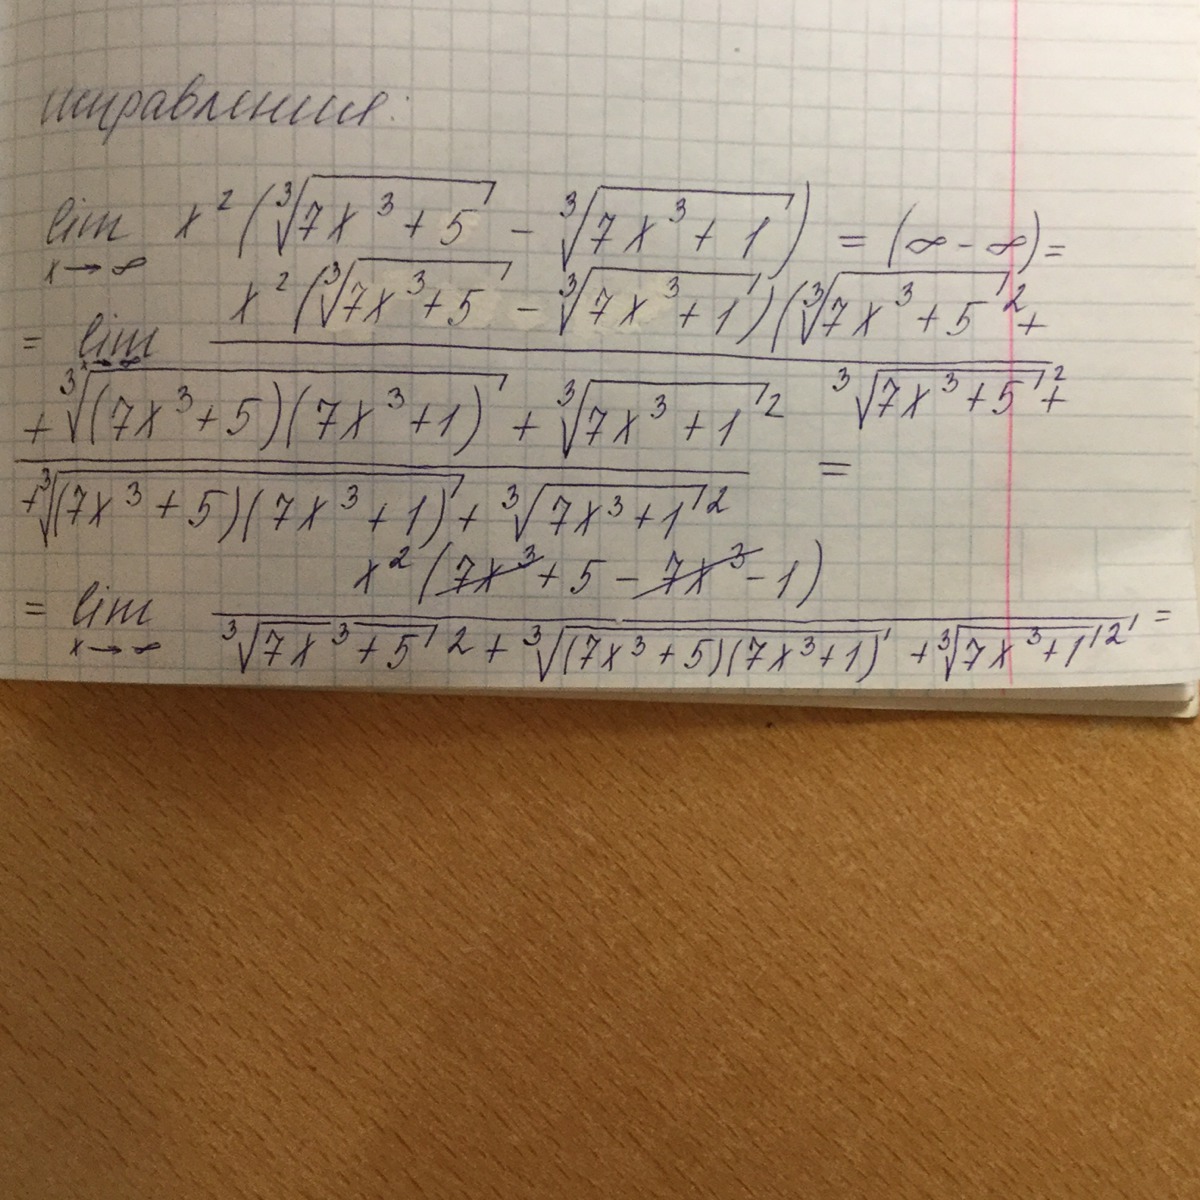 исправления:
lim x→∞ x² (∛(7x³+5) − ∛(7x³+1)) = (∞−∞) =
= lim x→∞ x² (∛(7x³+5) − ∛(7x³+1)) (∛(7x³+5)² +
+ ∛((7x³+5)(7x³+1)) + ∛(7x³+1)² ∛(7x³+5)² +
+ ∛((7x³+5)(7x³+1)) + ∛(7x³+1)² =
x² (7x³+5−7x³−1)
= lim x→∞ ∛(7x³+5)² + ∛((7x³+5)(7x³+1)) + ∛(7x³+1)² =